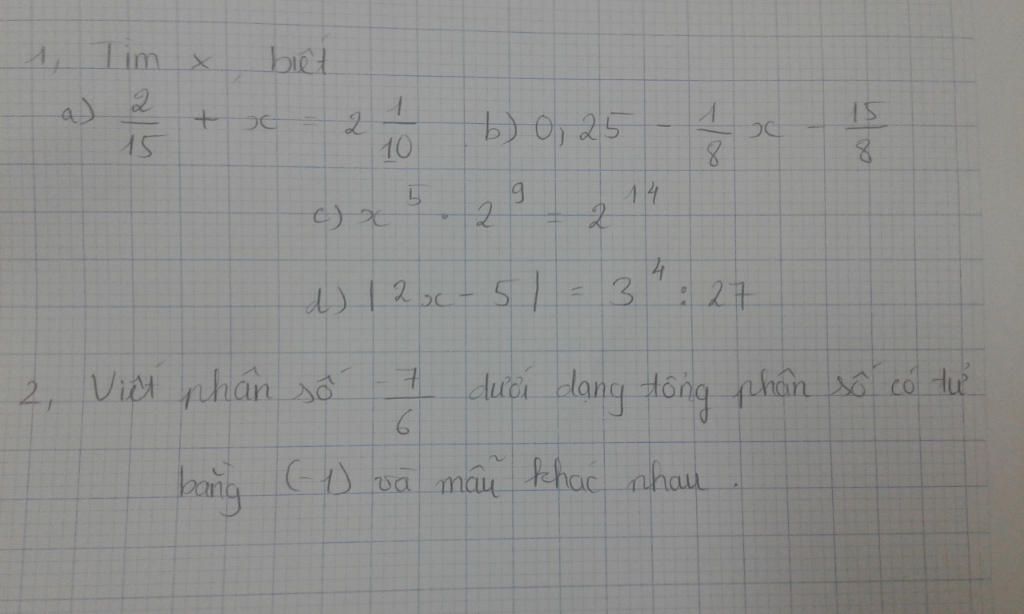 1, Tìm x, biết
a) 2/15 + x = 2 1/10 b) 0,25 - 1/8 x - 15/8
c) x^5 . 2^9 = 2^14
d) |2x - 5| = 3^4 : 27
2, Viết phân số -7/6 dưới dạng tổng phân số có tử
bằng (-1) và mẫu khác nhau.